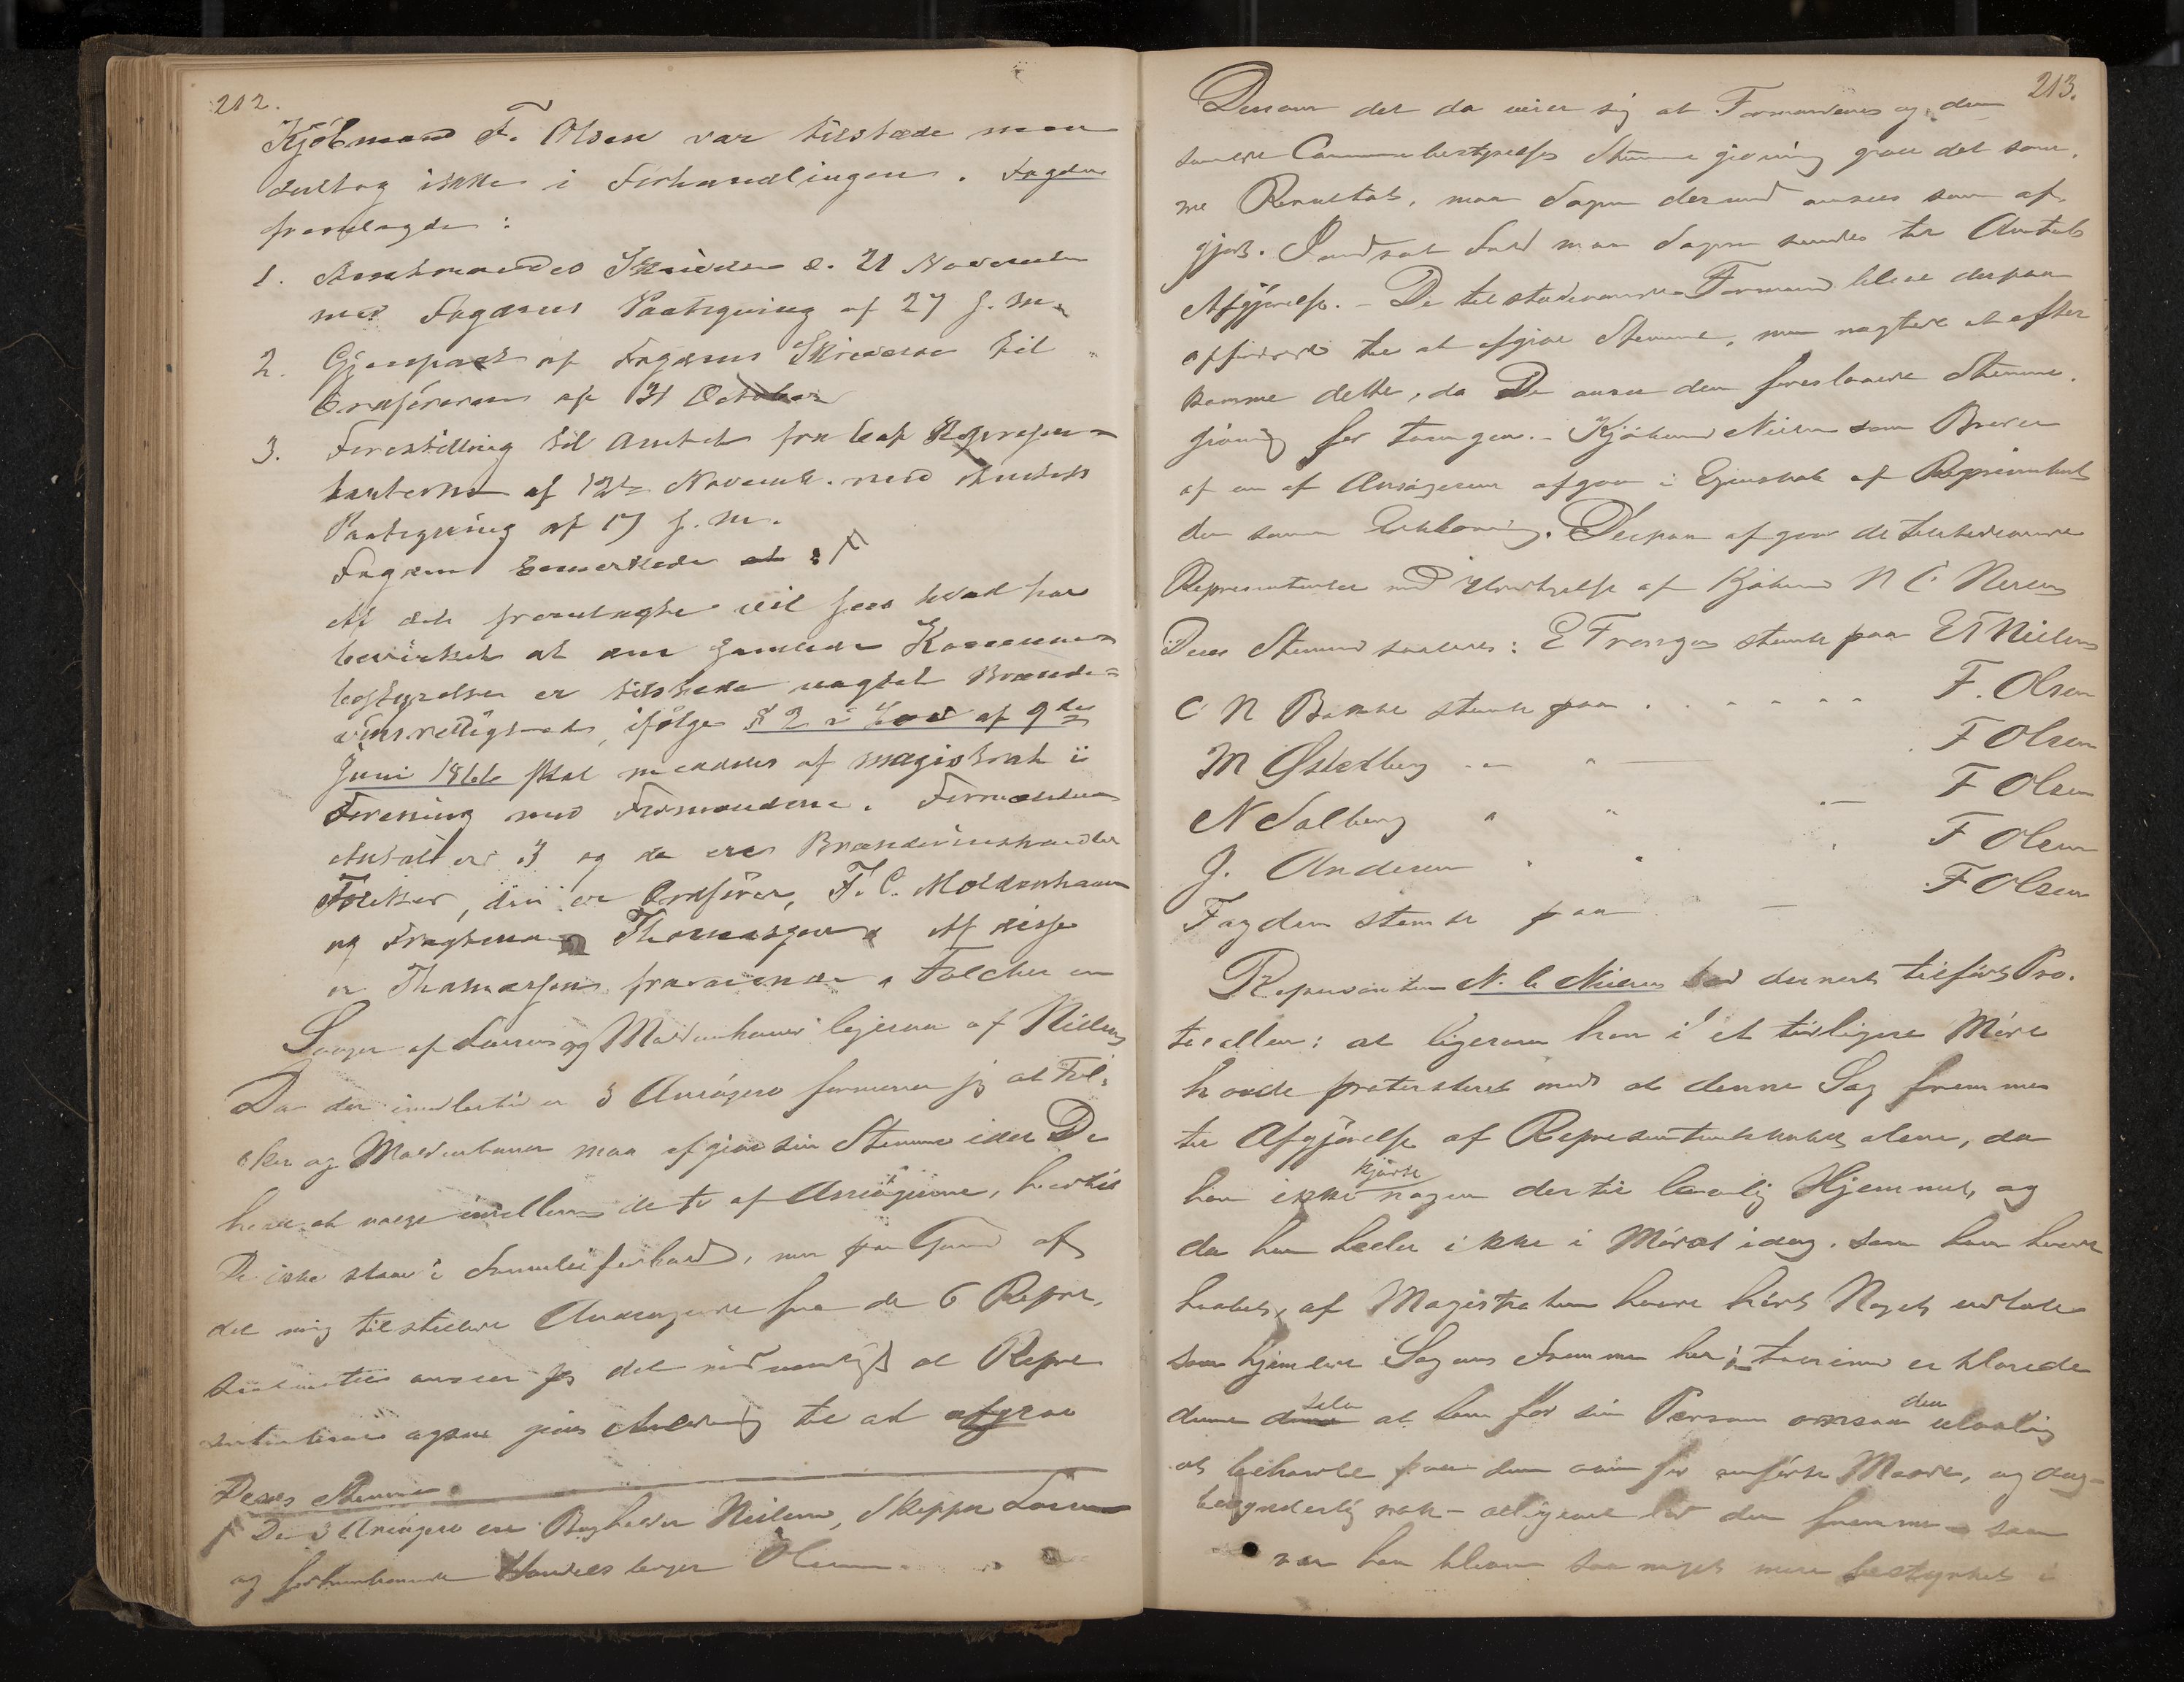 212.
Kjöbmand F. Olsen var tilstede men
deltog ikke i Forhandlingen. Fogden
fremlagde:
1. Amtmandes Skrivelse d. 21 November
med Fogdens Paategning af 27 f. M.
2. Gjenpart af Fogdens Skrivelse til
Ordföreren af 31 October
3. Forestilling til Amtet fra 6 af Repræsen=
tanterne af 12te Novemb. med Amtets
Paategning af 17 f. M.
Fogden bemærkede at :
Af det fremlagte vil sees hvad har
bevirket at den samlede Kommune
bestyrelse er tilstede uagtet Brænde=
vinsrettighed, ifölge § 2 i Lov af 9de
Juni 1866 skal meddeles af Magistrat i
Forening med Formændene. Formændenes
Antal er 3 og de ere Brændevinshandler
Folcker, der er Ordförer, F. C. Moldenhauer
og Thomasgaard. Af disse
er Thomasgaard fraværende. Folcker er
Svoger af Larsen og Moldenhauer ligesaa af Nielsen
Da der imidlertid er 3 Ansögere formener jeg at Fol-
cker og Moldenhauer maa afgive sin Stemme idet De
have at vælge imellem de to af Ansögerne, hvortil
De ikke staar i Svogerskab, men paa Grund af
det mig tilstillede Andragende fra de 6 Repræ-
sentanter anseer jeg det nödvendigt at Repræ
sentanterne ogsaa gives Anledning til at afgive
Deres Stemme.
De 3 Ansögere ere Bogholder Nielsen, Skipper Larsen
og forhenværende Handelsborger Olsen.
213.
Dersom det da viser sig at Formændenes og den
samlede Communebestyrelses Stemmegivning gaar det sam-
me Resultat, maa Sagen dermed ansees som af-
gjort. I modsat Fald maa Sagen sendes til Amtets
Afgjörelse. – De tilstedeværende Formænd bleve derpaa
opfordrede til at afgive Stemme, men nægtede at efter
komme dette, da De ansee den foreslaaede Stemme-
givning for tvungen. – Kjöbmand Nielsen som Broder
af en af Ansögerne afgav i Egenskab af Repræsentant
den samme Erklæring. Derpaa afgav de tilstedeværende
Repræsentanter med Undtagelse af Kjöbmd N C Nielsen
Deres Stemmer saaledes: E Fronger stemte paa E T Nielsen
C N Bakke stemte paa . . - - - - F. Olsen
M Österberg - - " — F Olsen
N Solberg " " - F Olsen
J. Andersen " " F Olsen
Fogden stemte paa — F Olsen
Repræsentanten N. C. Nielsen bad dernest tilfört Pro-
tocollen: at ligesom han i et tidligere Möde
havde protesteret mod at denne Sag fremmes
til Afgjörelse af Repræsentantskabet alene, da
han ikke kjendte nogen dertil lovlig Hjemmel, og
da han heller ikke i Mödet idag, som han havde
haabet, af Magistraten havde hört Noget udtale
som hjemlede Sagens Fremme her; tvertimod erklærede
denne selv at han for sin Person ansaa den ulovlig
at behandle paa den anförte Maade, og dog –
besynderlig nok – alligevel lod den fremme – saa
var han bleven saa meget mere bestyrket i